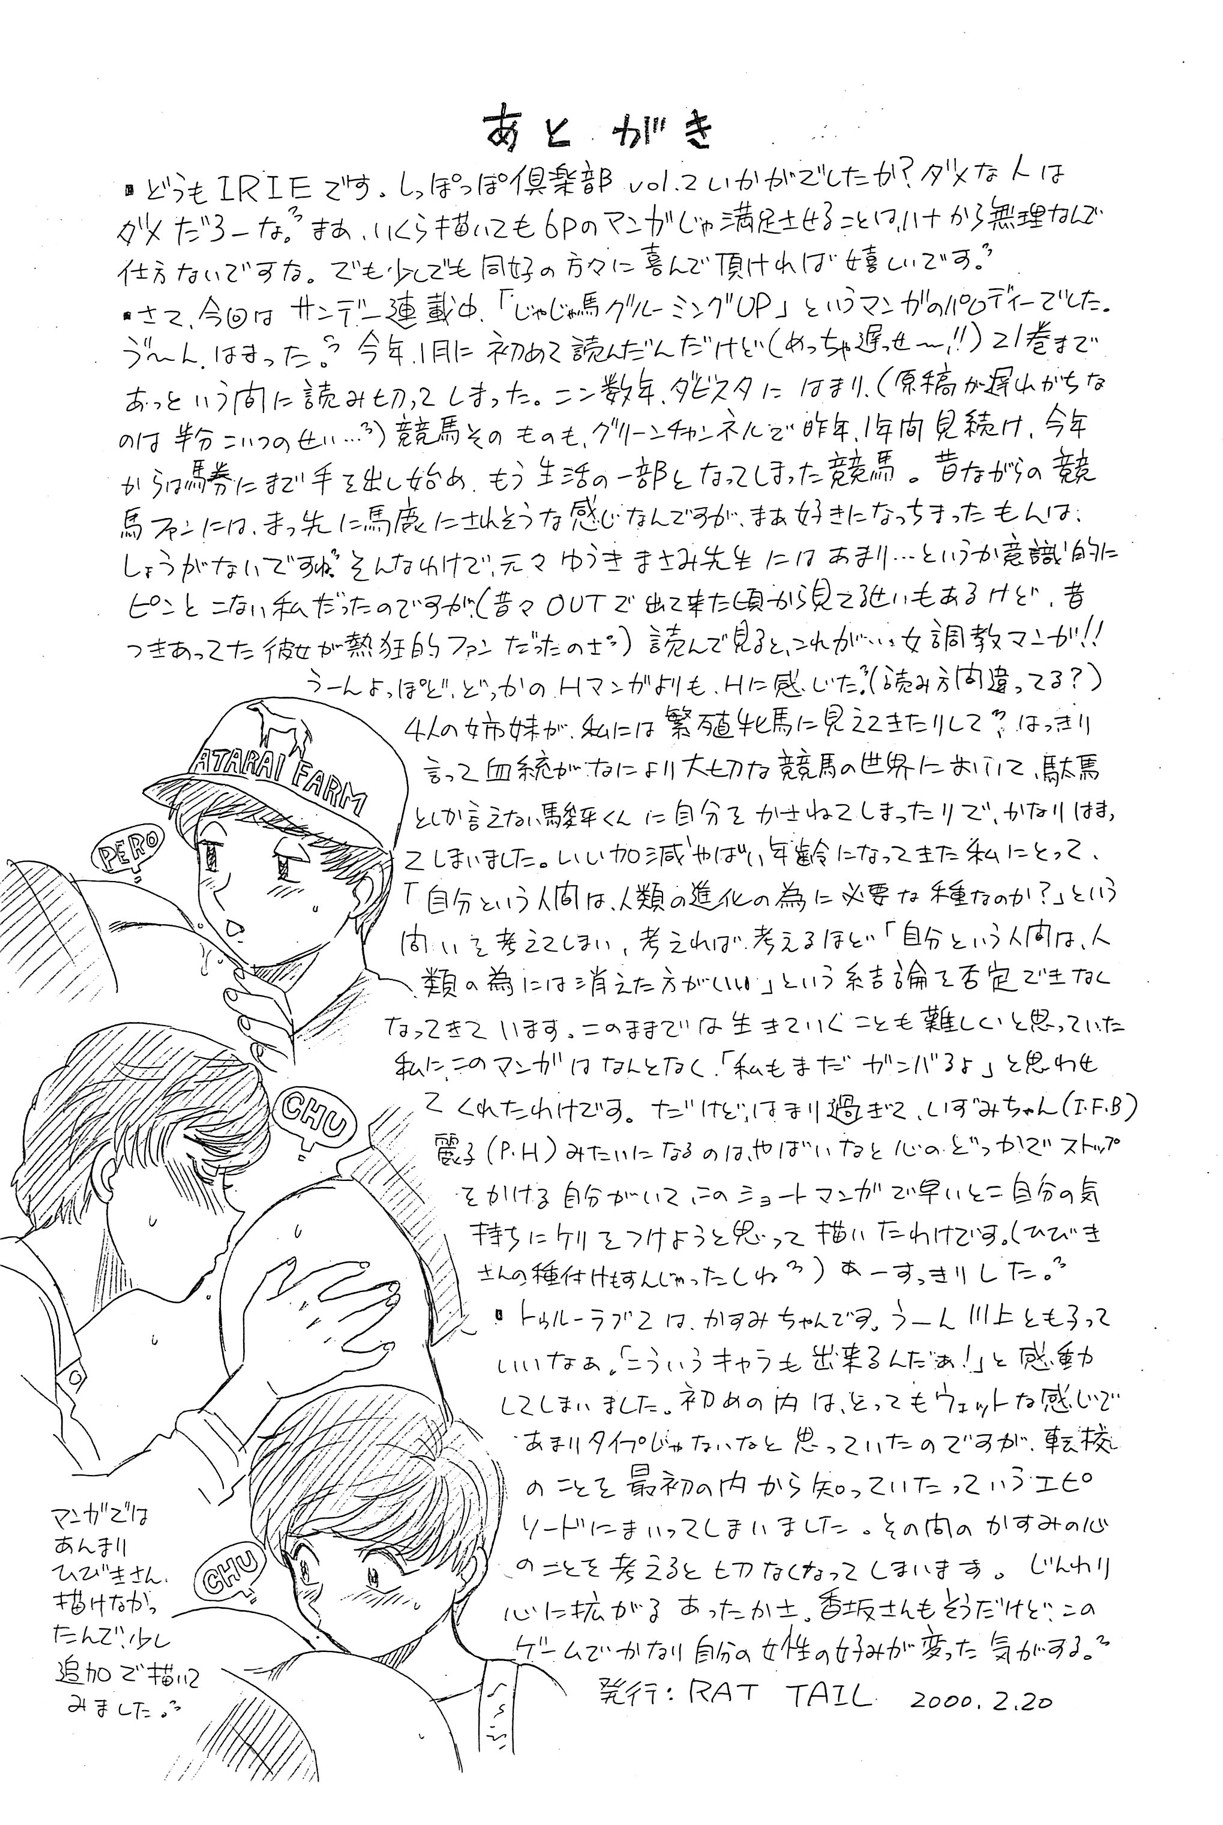 あとがき
・どうもIRIEです。しっぽっぽ倶楽部 vol.2いかがでしたか?ダメな人は
ダメだろーな。まぁ、いくら描いても6Pのマンガじゃ満足させることは、ハナから無理なんで
仕方ないですな。でも少しでも同好の方々に喜んで頂ければ嬉しいです。
・さて、今回はサンデー連載中、「じゃじゃ馬グルーミングUP」というマンガのパロディーでした。
う゛〜ん、はまった。今年、1月に初めて読んだんだけど(めっちゃ遅っせ〜!!)21巻まで
あっという間に読み切ってしまった。ここ数年、ダビスタにはまり、(原稿が遅れがちな
のは半分こいつのせい…)競馬そのものも、グリーンチャンネルで昨年、1年間見続け、今年
からは馬券にまで手を出し始め、もう生活の一部となってしまった競馬。昔ながらの競
馬ファンには、まっ先に馬鹿にされそうな感じなんですが、まぁ好きになっちまったもんは、
しょうがないですね。そんなわけで、元々ゆうきまさみ先生にはあまり…というか意識的に
ピンとこない私だったのですが、(昔々OUTで出て来た頃から見てるせいもあるけど、昔
つきあってた彼女が熱狂的ファンだったのさ)読んで見ると、これがいい女調教マンガ!!
うーんよっぽど、どっかのHマンガよりも、Hに感じた。(読み方間違ってる?)
4人の姉妹が、私には繁殖牝馬に見えてきたりして。はっきり
言って血統がなにより大切な競馬の世界において、駄馬
としか言えない駿平くんに自分をかさねてしまったりで、かなりはまっ
てしまいました。いい加減やばい年齢になってきた私にとって、
「自分という人間は、人類の進化の為に必要な種なのか?」という
問いを考えてしまい、考えれば考えるほど「自分という人間は、人
類の為には消えた方がいい」という結論を否定できなく
なってきています。このままでは生きていくことも難しいと思っていた
私に、このマンガはなんとなく、「私もまだガンバるよ」と思わせ
てくれたわけです。だけど、はまり過ぎて、いずみちゃん(I.F.B)
麗子(P.H)みたいになるのは、やばいなと心のどっかでストップ
をかける自分がいて、このショートマンガで早いとこ自分の気
持ちにケリをつけようと思って描いたわけです。(ひびき
さんの種付けもすんじゃったしね)あーすっきりした。
・トゥルーラブ2は、かすみちゃんです。うーん川上ともろって
いいなぁ。「こういうキャラも出来るんだぁ!」と感動
してしまいました。初めの内は、とってもウェットな感じで
あまりタイプじゃないなと思っていたのですが、転校
のことを最初の内から知っていたっていうエピ
ソードにまいってしまいました。その間のかすみの心
のことを考えると切なくなってしまいます。じんわり
心に拡がるあったかさ。香坂さんもそうだけど、この
ゲームでかなり自分の女性の好みが変った気がする。
発行:RAT TAIL 2000.2.20
ATARAI FARM
PERO
CHU
CHU
マンガでは
あんまり
ひびきさん、
描けなかっ
たんで、少し
追加で描いて
みました。